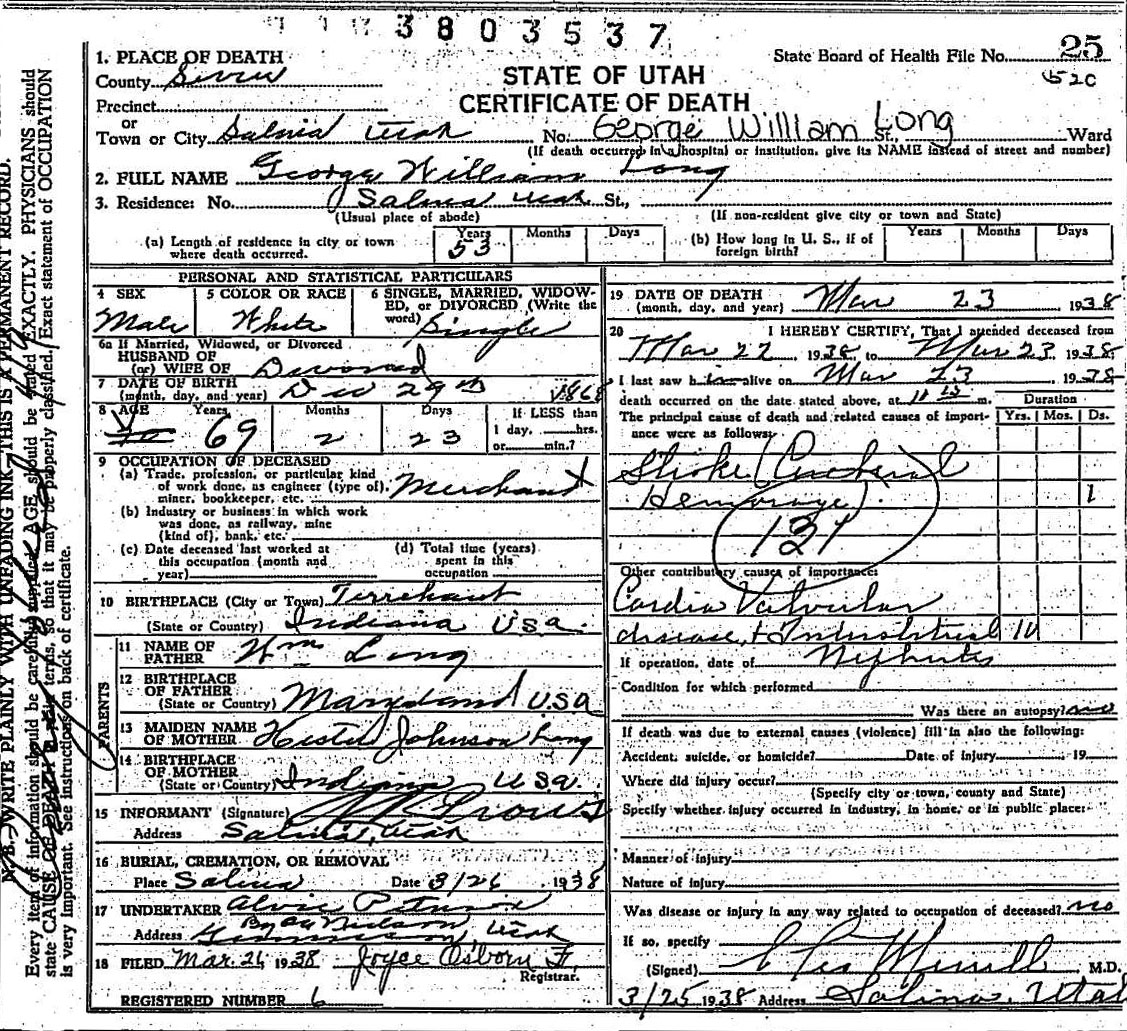 3803537
State Board of Health File No. 25
520
1. PLACE OF DEATH
County Sevier
STATE OF UTAH
CERTIFICATE OF DEATH
Precinct
or
Town or City Salina Utah No. George William St. Long Ward
(If death occurred in a hospital or institution, give its NAME instead of street and number)
2. FULL NAME George William Long
3. Residence: No. Salina Utah St.,
(Usual place of abode) (If non-resident give city or town and State)
(a) Length of residence in city or town where death occurred. Years 53 Months Days
(b) How long in U. S., if of foreign birth? Years Months Days
PERSONAL AND STATISTICAL PARTICULARS
4 SEX Male
5 COLOR OR RACE White
6 SINGLE, MARRIED, WIDOWED, or DIVORCED (Write the word) Single
6a If Married, Widowed, or Divorced
HUSBAND OF
(or) WIFE OF Divorced
7 DATE OF BIRTH
(month, day, and year) Dec 29th 1868
8 AGE Years 69 Months 2 Days 23
If LESS than
1 day, hrs.
or min.?
9 OCCUPATION OF DECEASED
(a) Trade, profession, or particular kind
of work done, as engineer (type of),
miner, bookkeeper, etc. Merchant
(b) Industry or business in which work
was done, as railway, mine
(kind of), bank, etc.
(c) Date deceased last worked at
this occupation (month and
year)
(d) Total time (years)
spent in this
occupation
10 BIRTHPLACE (City or Town) Terrehaut
(State or Country) Indiana USA.
PARENTS
11 NAME OF
FATHER Wm Long
12 BIRTHPLACE
OF FATHER
(State or Country) Maryland USA
13 MAIDEN NAME
OF MOTHER Hester Johnson Long
14 BIRTHPLACE
OF MOTHER
(State or Country) Indiana USA.
15 INFORMANT (Signature)
Address Salina, Utah
16 BURIAL, CREMATION, OR REMOVAL
Place Salina Date 3/26, 1938
17 UNDERTAKER
Address Utah
18 FILED Mar. 26, 1938 Joyce Osborn
Registrar.
REGISTERED NUMBER 6
19 DATE OF DEATH
(month, day, and year) Mar 23 1938
20 I HEREBY CERTIFY, That I attended deceased from
Mar 22 1938, to Mar 23 1938
I last saw him alive on Mar 23 1938
death occurred on the date stated above, at m.
Duration
The principal cause of death and related causes of importance were as follows: Yrs. Mos. Ds.
Stroke (Cerebral
Hemorage) 1
131
Other contributory causes of importance:
Cardia Valvular
disease, & Interstitial 10
If operation, date of Nephritis
Condition for which performed
Was there an autopsy? no
If death was due to external causes (violence) fill in also the following:
Accident, suicide, or homicide? Date of injury 19
Where did injury occur?
(Specify city or town, county and State)
Specify whether injury occurred in industry, in home, or in public place:
Manner of injury
Nature of injury
Was disease or injury in any way related to occupation of deceased? no
If so, specify
(Signed) Merrill M.D.
3/25 1938 Address Salina, Utah
N. B.—WRITE PLAINLY WITH UNFADING INK—THIS IS A PERMANENT RECORD.
Every item of information should be carefully supplied. AGE should be stated EXACTLY. PHYSICIANS should
state CAUSE OF DEATH in plain terms, so that it may be properly classified. Exact statement of OCCUPATION
is very important. See instructions on back of certificate.